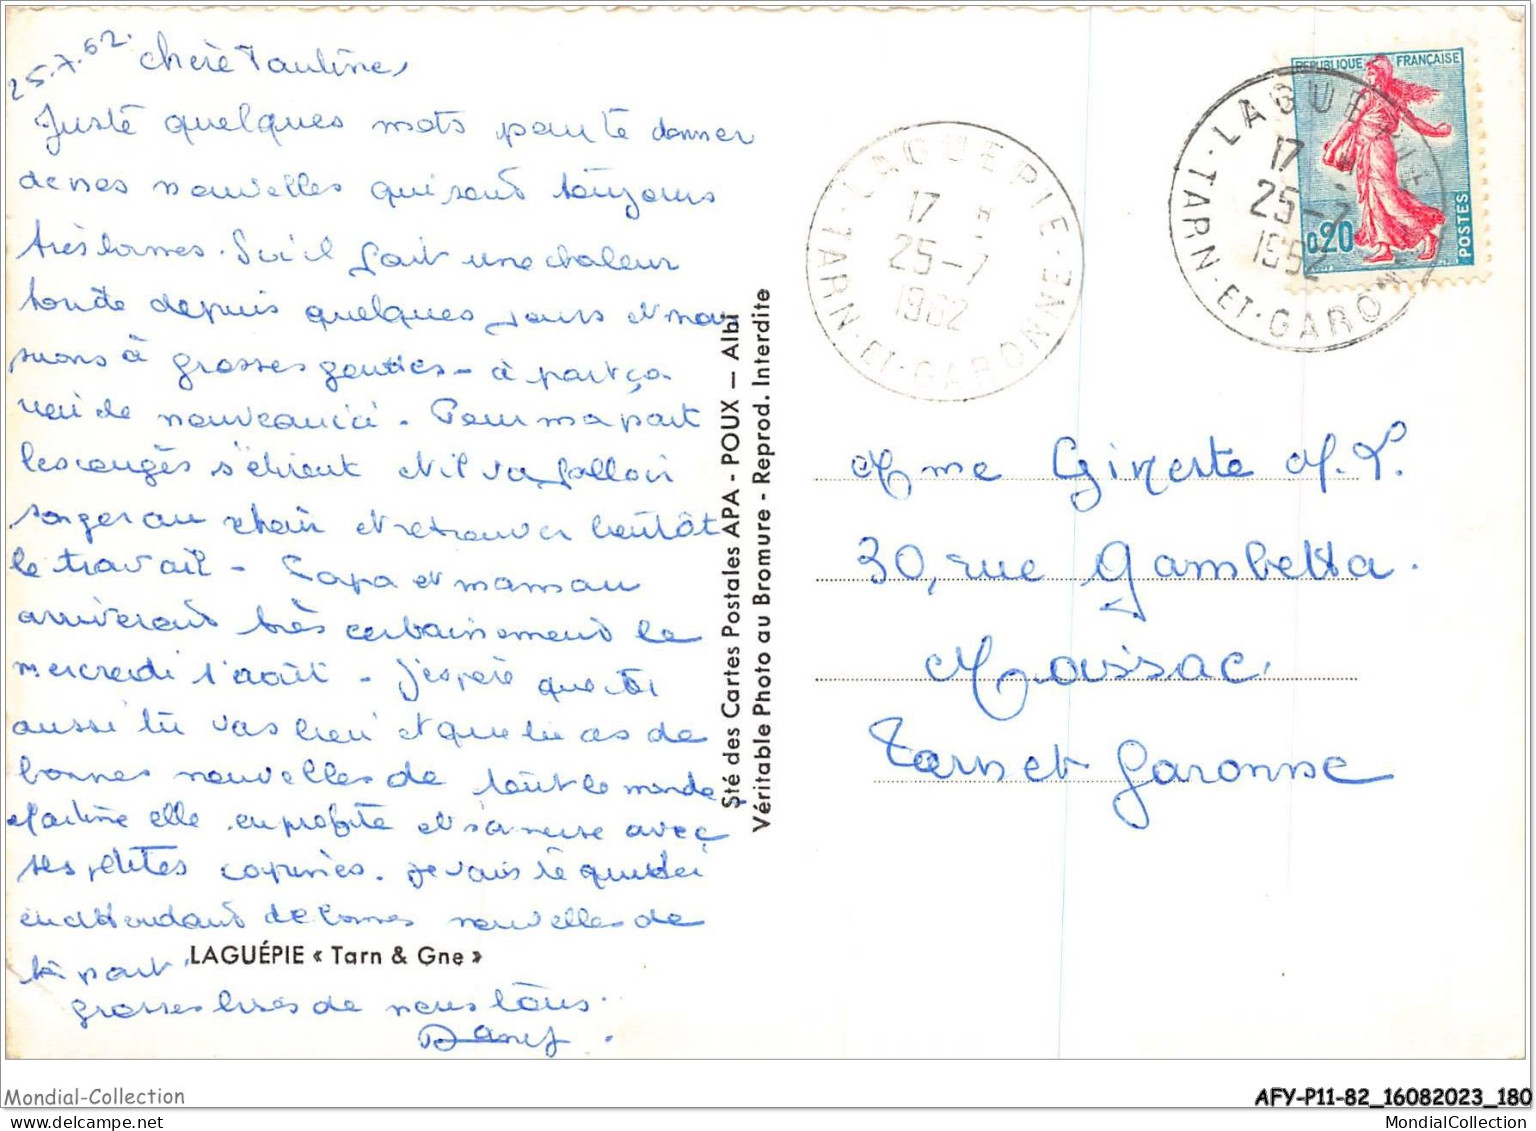 25.7.62. Chère Pauline,
Juste quelques mots pour te donner
de nos nouvelles qui sont toujours
très bonnes. Ici il fait une chaleur
depuis quelques jours et nous
suons à grosses gouttes - à part ça
rien de nouveau ici. Pour ma part
les congés s'étirent et il va falloir
songer au et retrouver bientôt
le travail - Papa et maman
arriveront très certainement le
mercredi 1 août - J'espère que toi
aussi tu vas bien et que tu as de
bonnes nouvelles de tout le monde
Martine elle en profite et s'amuse avec
ses petites copines. Je vais te quitter
en attendant de bonnes nouvelles de
ta part.
grosses bises de nous tous.
Dany.
LAGUÉPIE « Tarn & Gne »
Sté des Cartes Postales APA - POUX — Albi
Véritable Photo au Bromure - Reprod. Interdite
LAGUEPIE
17 H
25-7
1962
TARN-ET-GARONNE
LAGUEPIE
17 H
25-7
1962
TARN-ET-GARONNE
REPUBLIQUE FRANÇAISE
0,20
POSTES
Mme Gineste M. P.
30, rue Gambetta.
Moissac
Tarn et Garonne
Mondial-Collection
AFY-P11-82_16082023_180
MondialCollection